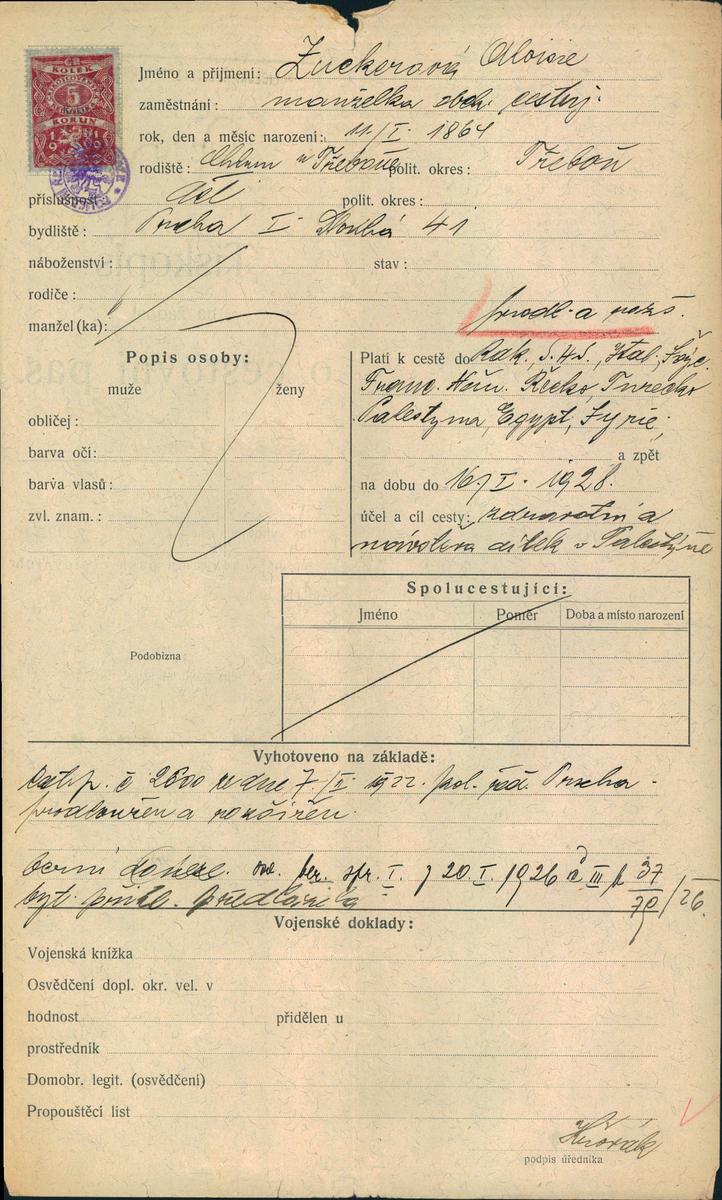 KOLEK
5
KORUN
Jméno a příjmení: Zuckerová Aloisie
zaměstnání: manželka obch. cestuj.
rok, den a měsíc narození: 11/I. 1864
rodiště: Chlum u Třeboně polit. okres: Třeboň
příslušnost: polit. okres:
bydliště: Praha I Dlouhá 41
náboženství: stav:
rodiče:
manžel (ka):
prodl. a rozš.
Popis osoby:
muže ženy
obličej:
barva očí:
barva vlasů:
zvl. znam.:
Platí k cestě do Rak., S.H.S., Ital., Švýc.
Franc. Něm. Řecko, Turecko
Palestyna, Egypt, Syrie,
a zpět
na dobu do 16/I. 1928.
účel a cíl cesty: zdravotní a
návštěva dítek v Palestýně
Spolucestující:
Jméno Poměr Doba a místo narození
Podobizna
Vyhotoveno na základě:
cest. p. č 2600 ze dne 7/I 1922. pol. řed. Praha -
prodloužen a rozšířen.
berní ber. spr. I. z 20. I. 1926 III 37
70/26
byt. přihl. předložila
Vojenské doklady:
Vojenská knížka
Osvědčení dopl. okr. vel. v
hodnost přidělen u
prostředník
Domobr. legit. (osvědčení)
Propouštěcí list
podpis úředníka